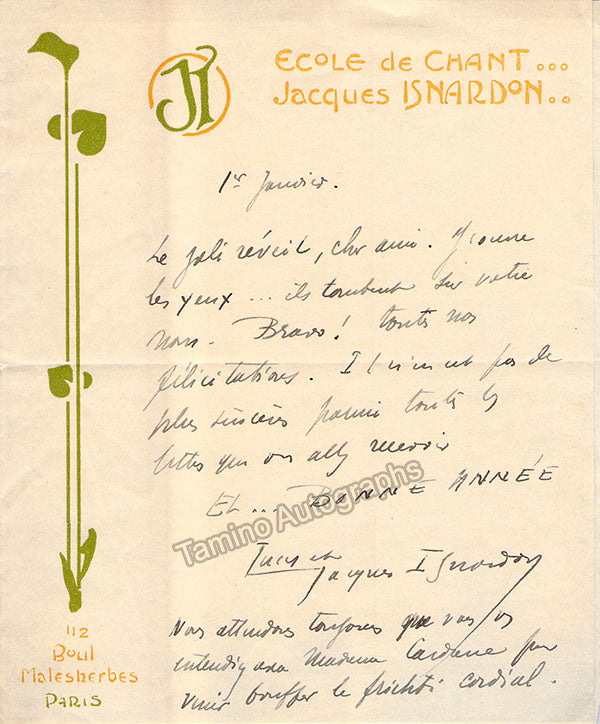 JI
ECOLE de CHANT...
Jacques ISNARDON..
1er Janvier.
Le joli réveil, cher ami. J'ouvre
les yeux... ils tombent sur votre
nom. Bravo! toutes nos
félicitations. Il n'en est pas de
plus sincères parmi toutes les
lettres que vous allez recevoir
Et... BONNE ANNÉE
Lucy et
Jacques ISnardon
Nous attendons toujours que vous vous
entendiez avec Madame pour
venir bouffer le frichti cordial.
112
Boul
Malesherbes
PARIS
Tamino Autographs